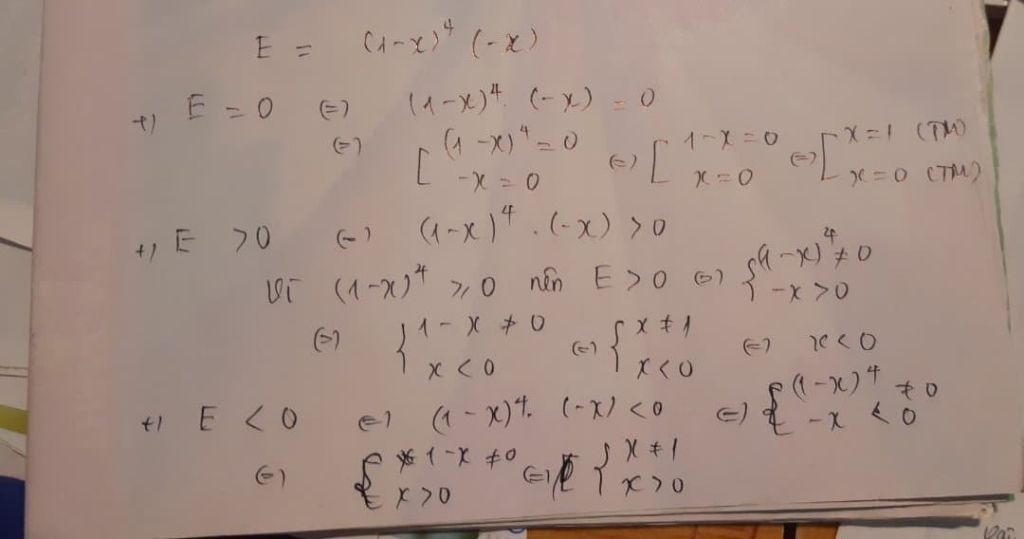 E = (1-x)⁴ (-x)
+) E = 0 (=) (1-x)⁴. (-x) = 0
(=) [ (1-x)⁴ = 0 (=) [ 1-x = 0 (=) [ x = 1 (TM)
-x = 0 x = 0 x = 0 (TM)
+) E > 0 (=) (1-x)⁴ . (-x) > 0
Vì (1-x)⁴ ⩾ 0 nên E > 0 (=) { (1-x)⁴ ≠ 0
-x > 0
(=) { 1-x ≠ 0 (=) { x ≠ 1 (=) x < 0
x < 0 x < 0
+) E < 0 (=) (1-x)⁴. (-x) < 0 (=) { (1-x)⁴ ≠ 0
-x < 0
(=) { 1-x ≠ 0 (=) { x ≠ 1
x > 0 x > 0